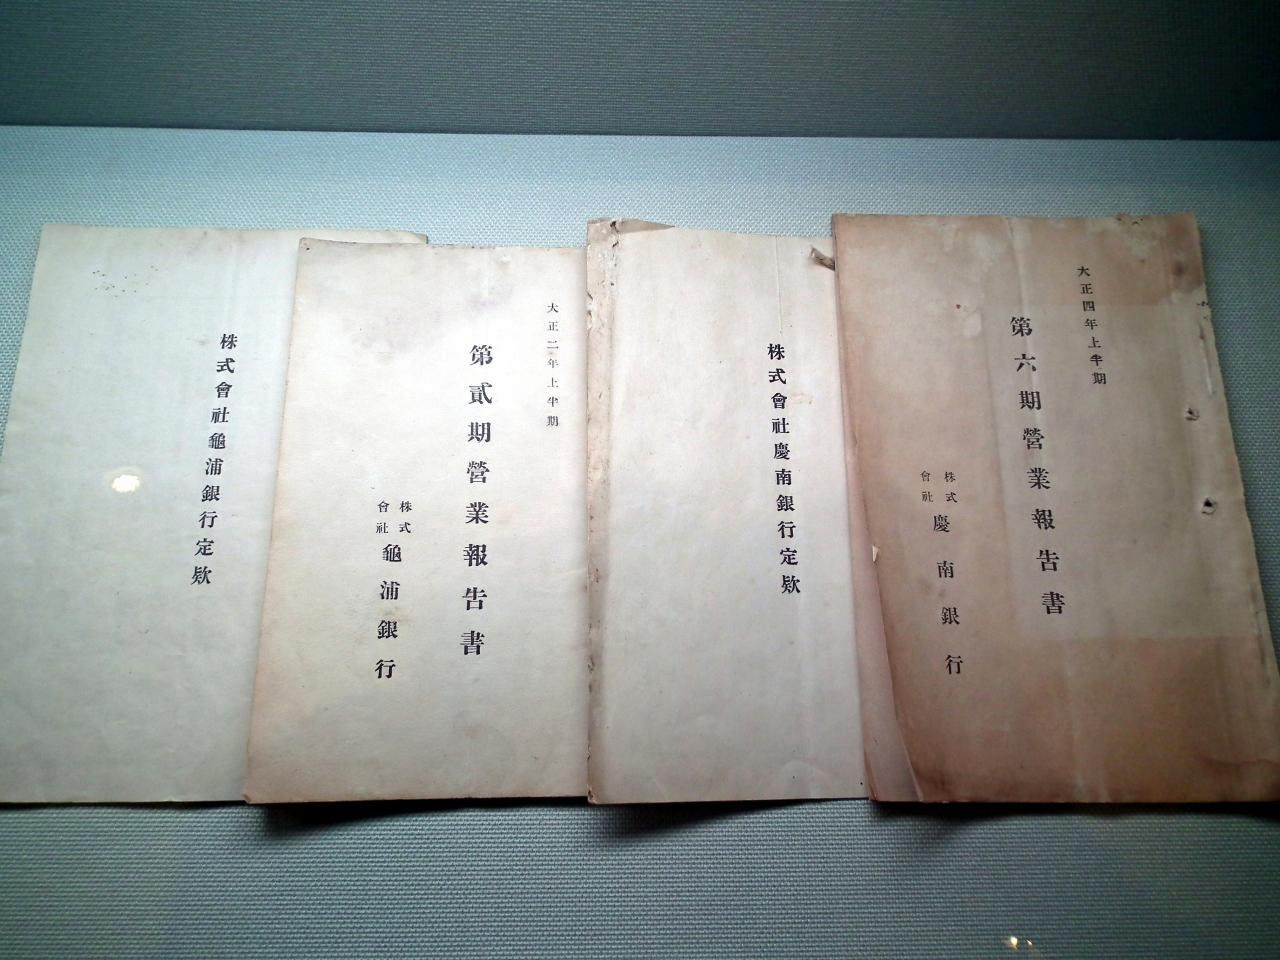 株式會社龜浦銀行定欵
大正二年上半期
第貳期營業報告書
株式會社龜浦銀行
株式會社慶南銀行定欵
大正四年上半期
第六期營業報告書
株式會社慶南銀行